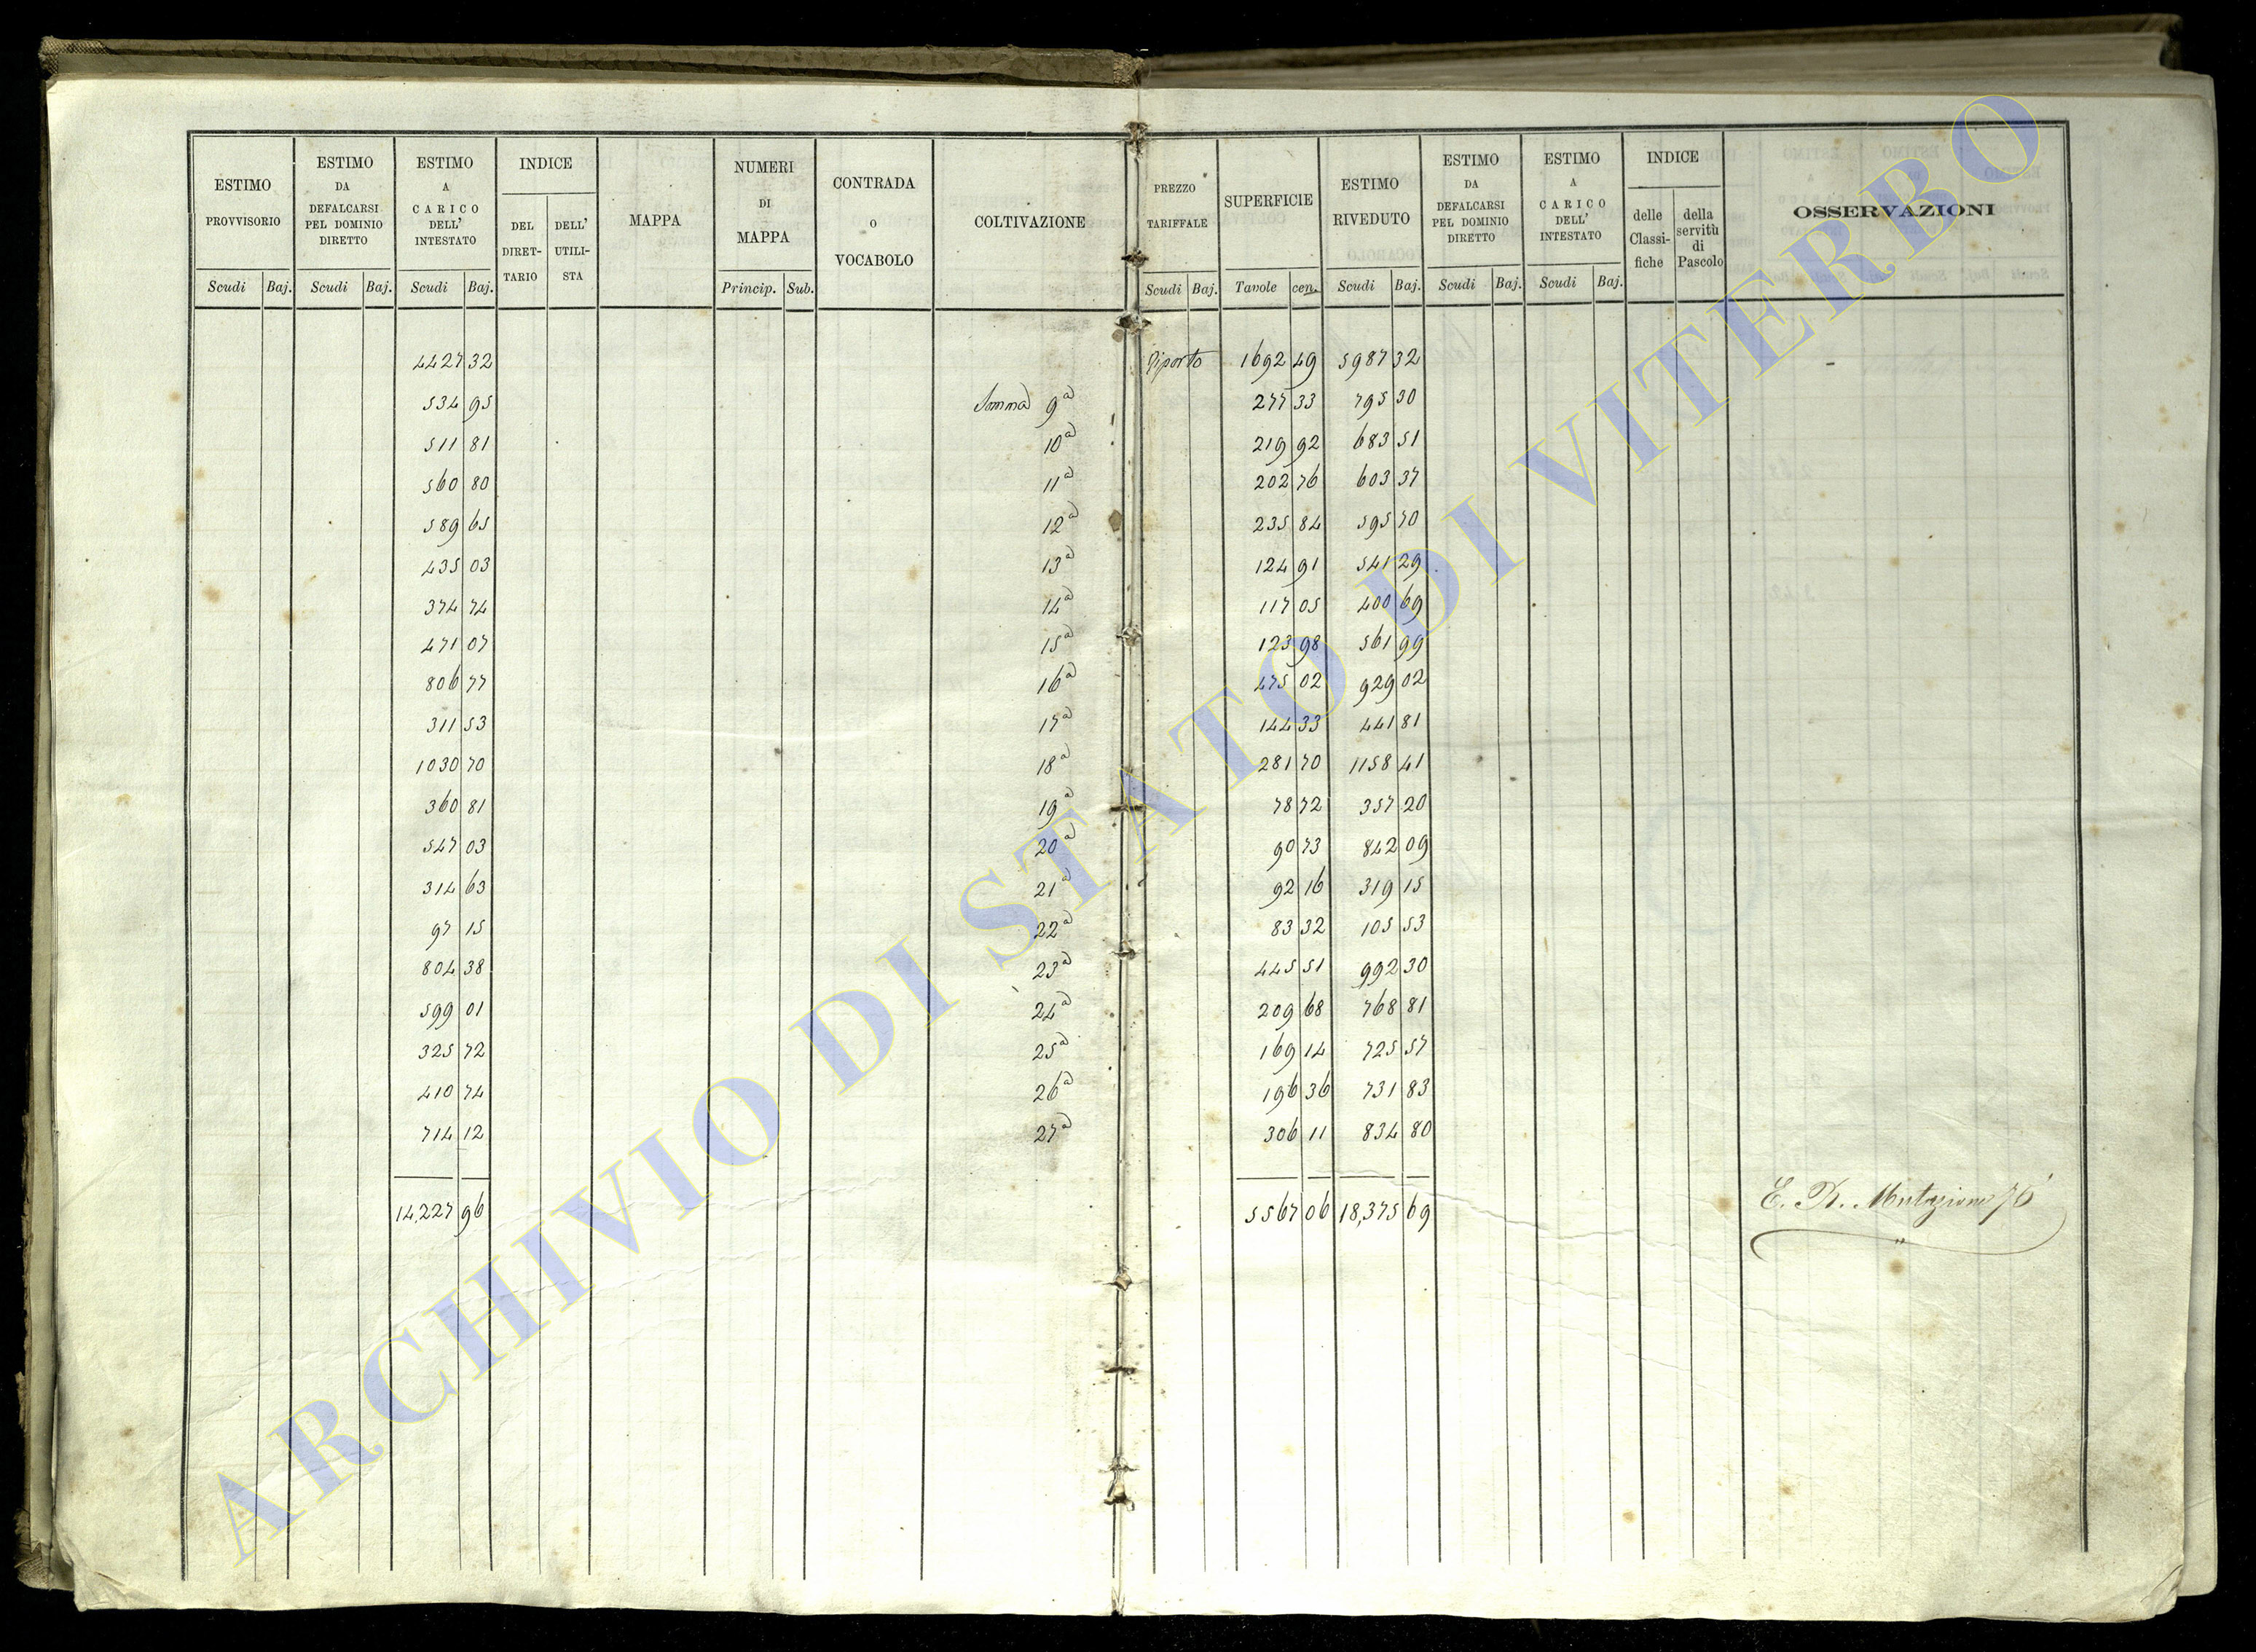 ESTIMO PROVVISORIO
ESTIMO DA DEFALCARSI PEL DOMINIO DIRETTO
ESTIMO A CARICO DELL' INTESTATO
INDICE
DEL DIRET-TARIO
DELL' UTILI-STA
MAPPA
NUMERI DI MAPPA
CONTRADA o VOCABOLO
COLTIVAZIONE
PREZZO TARIFFALE
SUPERFICIE
ESTIMO RIVEDUTO
ESTIMO DA DEFALCARSI PEL DOMINIO DIRETTO
ESTIMO A CARICO DELL' INTESTATO
INDICE
delle Classi-fiche
della servitù di Pascolo
OSSERVAZIONI
Scudi Baj. Scudi Baj. Scudi Baj. Princip. Sub. Scudi Baj. Tavole cen. Scudi Baj. Scudi Baj. Scudi Baj.
4427 32 Riporto 1692 49 5987 32
534 95 Somma 9a 277 33 795 30
511 81 10a 219 92 683 51
560 80 11a 202 76 603 37
589 65 12a 235 84 595 70
435 03 13a 124 91 541 29
374 74 14a 117 05 400 69
471 07 15a 123 98 561 99
806 77 16a 475 02 929 02
311 53 17a 144 33 441 81
1030 70 18a 281 70 1158 41
360 81 19a 78 72 357 20
547 03 20a 90 73 842 09
314 63 21a 92 16 319 15
97 15 22a 83 32 105 53
804 38 23a 445 51 992 30
599 01 24a 209 68 768 81
325 72 25a 169 14 725 57
410 74 26a 196 36 731 83
714 12 27a 306 11 834 80
14,227 96 5567 06 18,375 69
E. R. Mutazione 76
ARCHIVIO DI STATO DI VITERBO